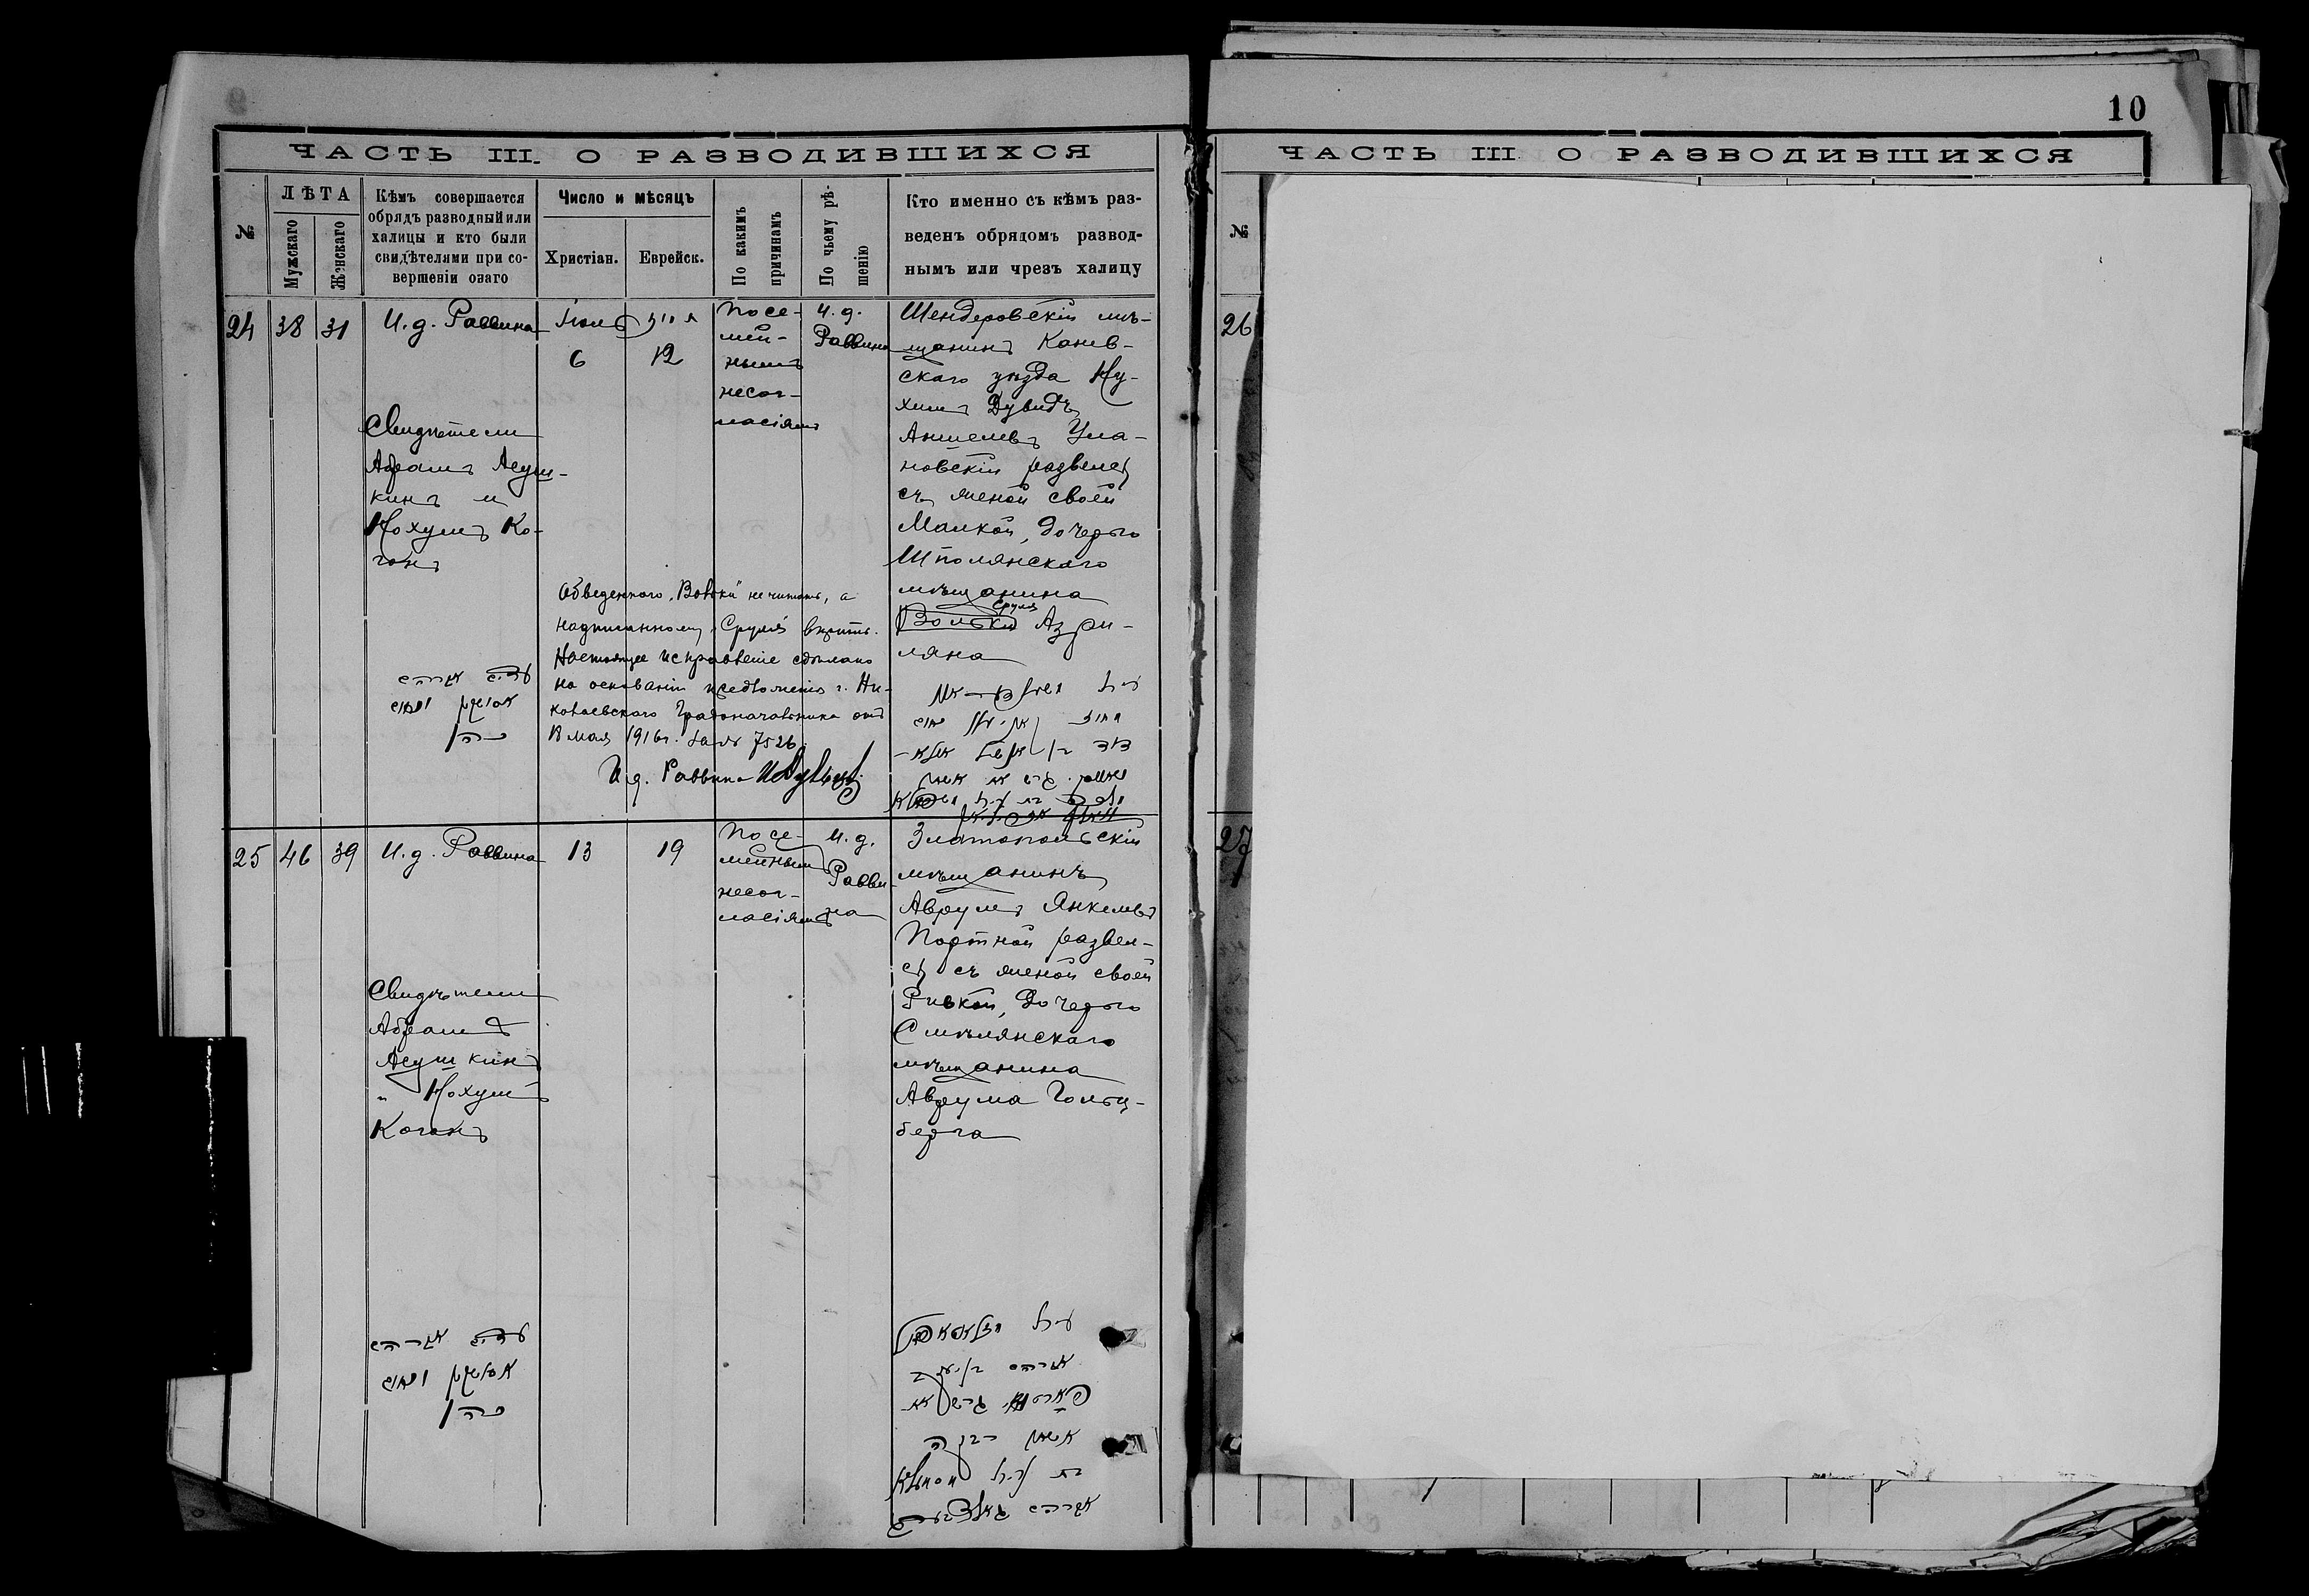 ЧАСТЬ III. О РАЗВОДИВШИХСЯ
№
ЛѢТА
Мужскаго
Женскаго
Кѣмъ совершается
обрядъ разводный или
халицы и кто были
свидѣтелями при со-
вершеніи онаго
Число и мѣсяцъ
Христіан.
Еврейск.
По какимъ
причинамъ
По чьему рѣ-
шенію
Кто именно съ кѣмъ раз-
веденъ обрядомъ развод-
нымъ или чрезъ халицу
24
38
31
И. д. Раввина
Свидѣтели
Абрамъ Асуш-
кинъ и
Нохумъ Ко-
ганъ
עדים אברהם
אסושקין ונחום
כהן
Іюль
6
12
По се-
мей-
нымъ
несог-
ласіямъ
И. д.
Раввина
Шендеровскій мѣ-
щанинъ Канев-
скаго уѣзда Ну-
химъ Дувидъ
Аншелевъ Ула-
новскій развелся
съ женой своей
Малкой, дочерью
Шполянскаго
мѣщанина
Сруля
Вольки Азри-
ляна
Обведенного „Вольки" не читать, а
надписанному „Сруля" вѣрить.
Настоящее исправленіе сдѣлано
на основаніи предложенія г. Ни-
колаевского Градоначальника отъ
18 мая 1916 г. за № 7526.
И. д. Раввина
25
46
39
И. д. Раввина
Свидѣтели
Абрамъ
Асушкинъ
и Нохумъ
Коганъ
עדים אברהם
אסושקין ונחום
כהן
13
19
По се-
мейнымъ
несог-
ласіямъ
И. д.
Равви-
на
Златопольскій
мѣщанинъ
Аврумъ Янкелевъ
Портной развел-
ся съ женой своей
Ривкой, дочерью
Смѣлянскаго
мѣщанина
Аврума Гольц-
берга
10
ЧАСТЬ III О РАЗВОДИВШИХСЯ
№
26
27